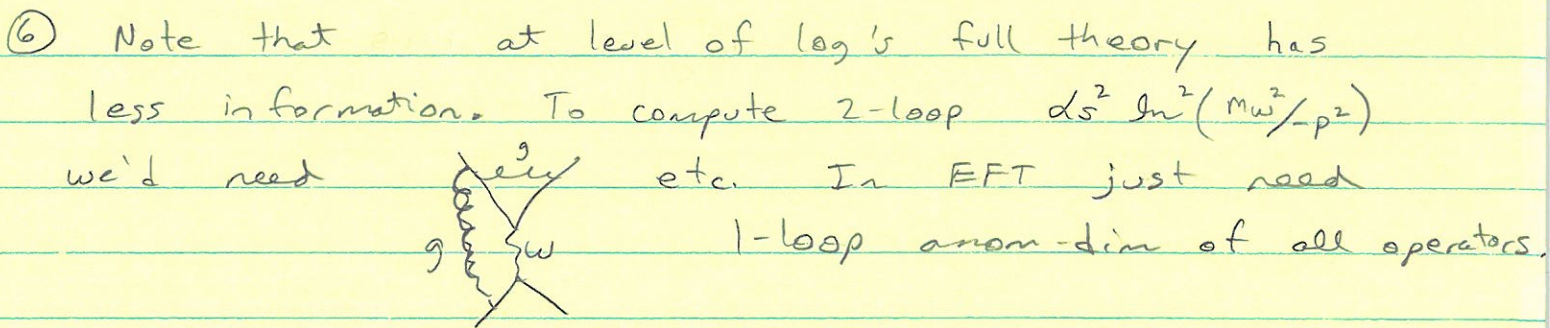 ⑥ Note that at level of log's full theory has
less information. To compute 2-loop αs² ln²(mw²/-p²)
we'd need g g w etc. In EFT just need
1-loop anom-dim of all operators.